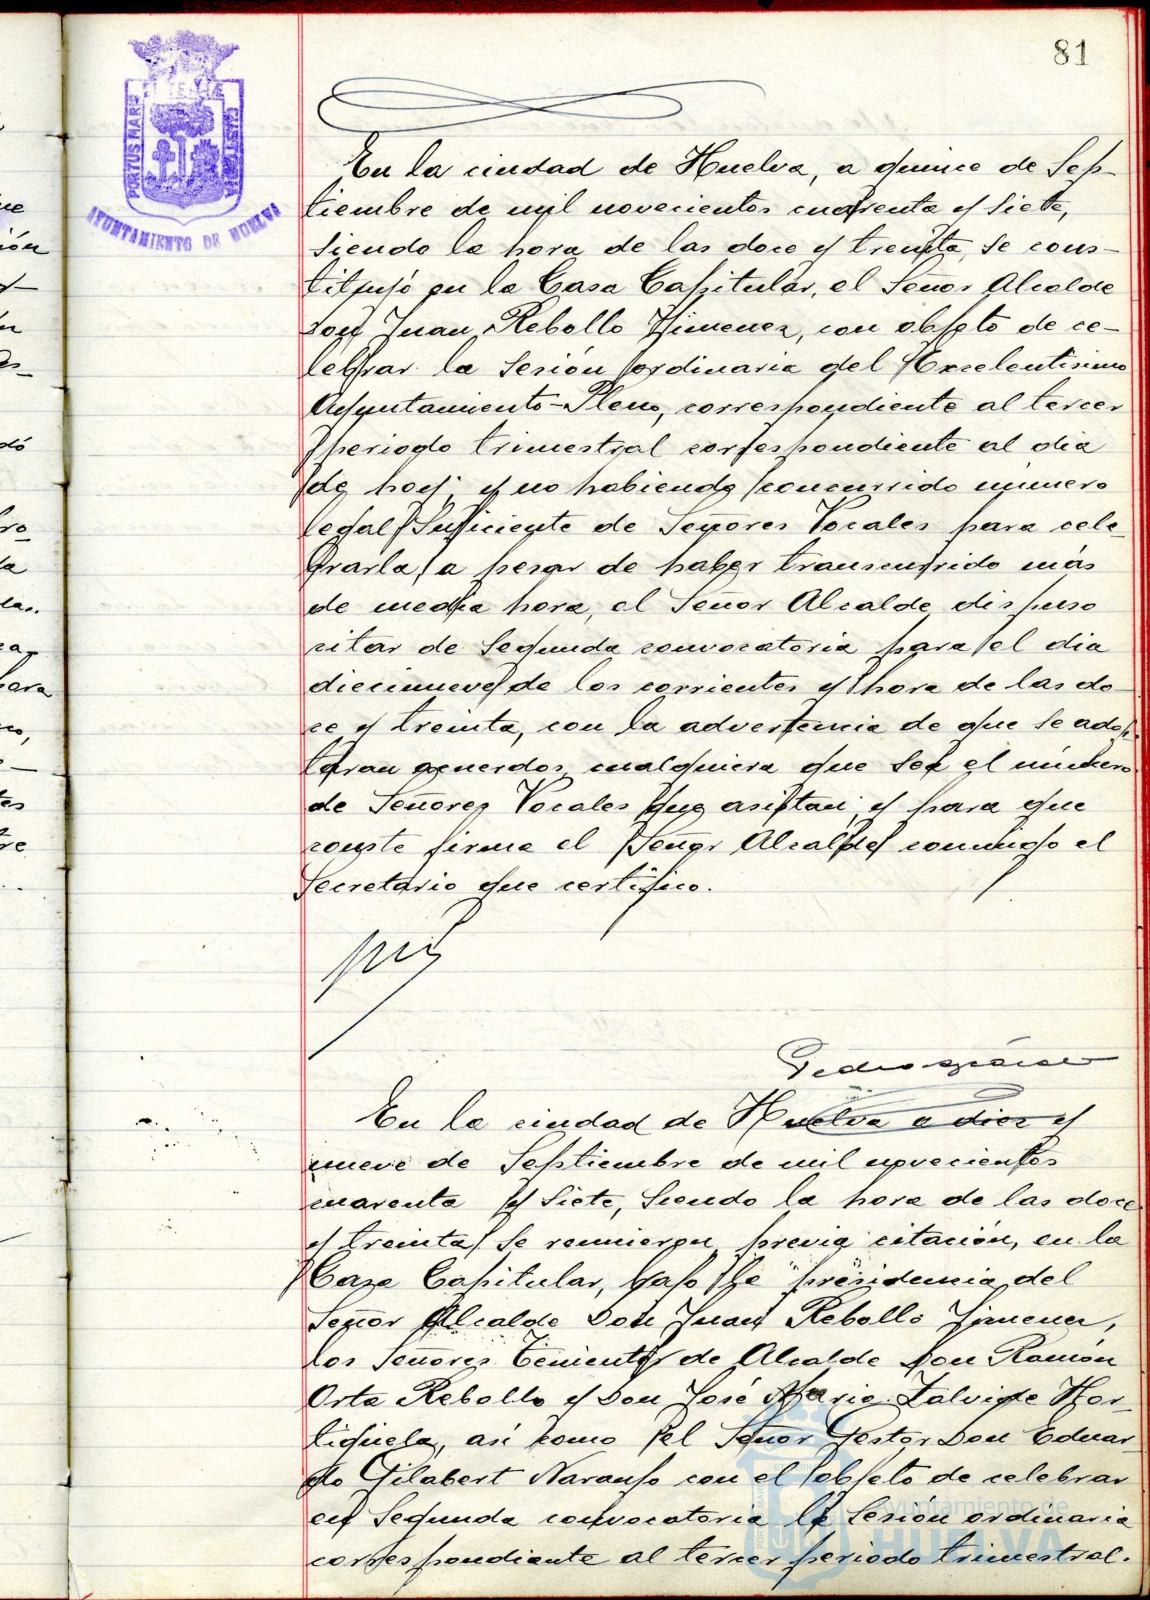 81
PORTUS MARIS ET TERRAE CUSTODIA
AYUNTAMIENTO DE HUELVA
En la ciudad de Huelva, a quince de Sep-
tiembre de mil novecientos cuarenta y siete,
siendo la hora de las doce y treinta, se cons-
tituyó en la Casa Capitular, el Señor Alcalde
Don Juan Rebollo Jimenez, con objeto de ce-
lebrar la sesión ordinaria del Excelentisimo
Ayuntamiento-Pleno, correspondiente al tercer
periodo trimestral correspondiente al dia
de hoy, y no habiendo concurrido número
legal suficiente de Señores Vocales para cele-
brarla, a pesar de haber transcurrido más
de media hora, el Señor Alcalde dispuso
citar de segunda convocatoria para el dia
diecinueve de los corrientes y hora de las do
ce y treinta, con la advertencia de que se adop-
taran acuerdos cualquiera que sea el número
de Señores Vocales que asistan; y para que
conste firma el Señor Alcalde conmigo el
Secretario que certifico.
En la ciudad de Huelva a diez y
nueve de Septiembre de mil novecientos
cuarenta y siete, siendo la hora de las doce
y treinta, se reunieron, previa citación, en la
Casa Capitular, bajo la presidencia del
Señor Alcalde Don Juan Rebollo Jimenez,
los Señores Tenientes de Alcalde Don Ramón
Orta Rebollo y Don José Maria Zalvide Hor-
tigüela, asi como el Señor Gestor Don Eduar-
do Gilabert Naranjo con el objeto de celebrar
en segunda convocatoria la sesión ordinaria
correspondiente al tercer periodo trimestral.
Ayuntamiento de
HUELVA